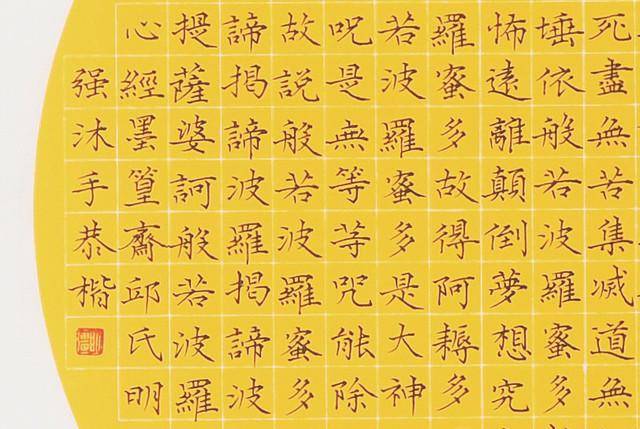 死盡無苦集滅道無
埵依般若波羅蜜多
怖遠離顛倒夢想究
羅蜜多故得阿耨多
若波羅蜜多是大神
咒是無等等咒能除
故說般若波羅蜜多
諦揭諦波羅揭諦波
提薩婆訶般若波羅
心經墨篁齋邱氏明
强沐手恭楷